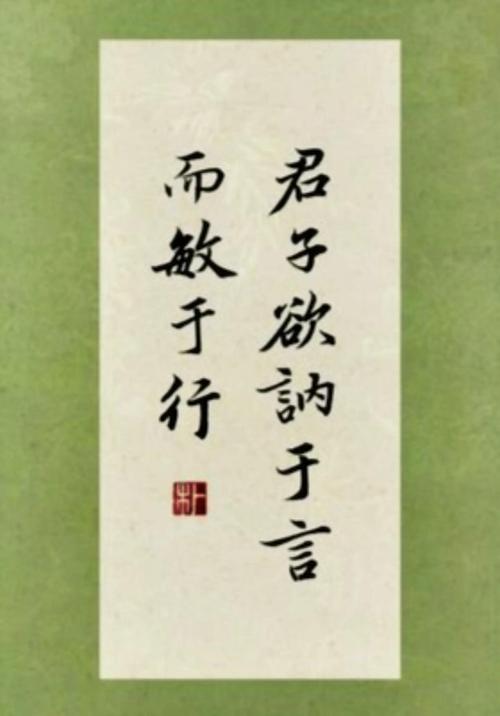 君子欲訥于言
而敏于行